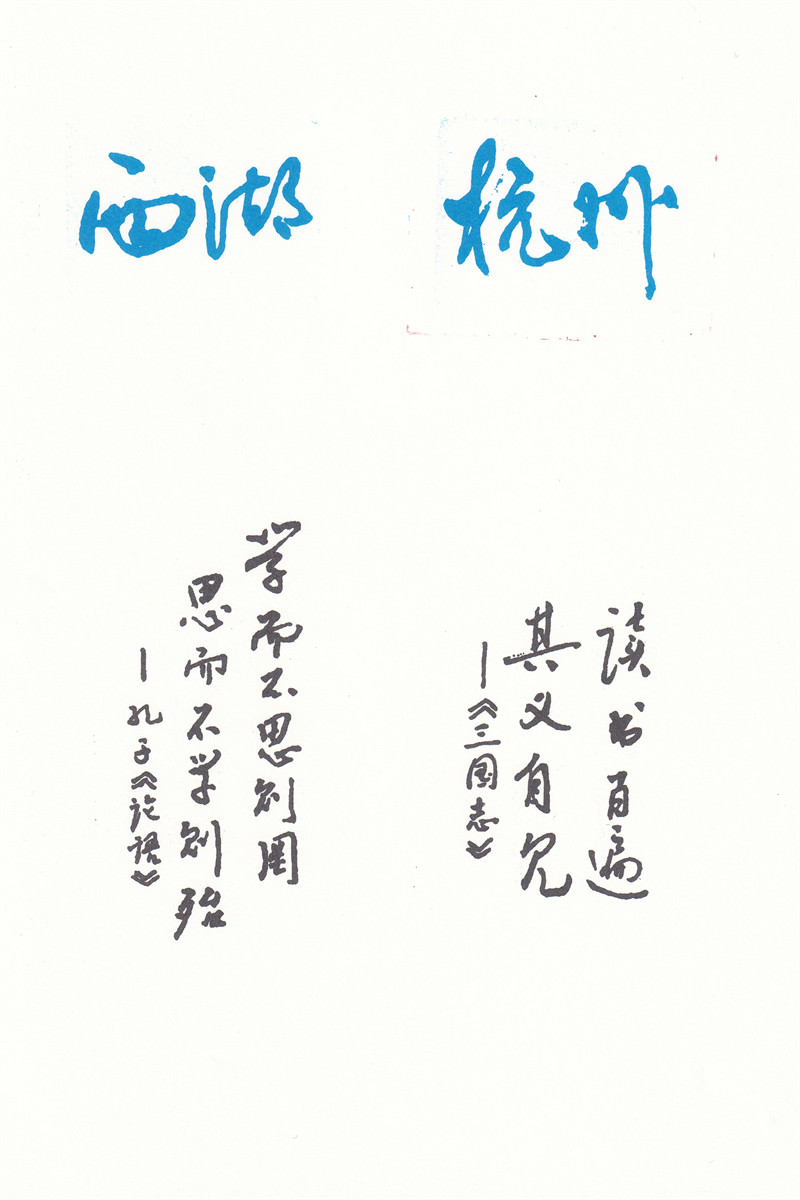 西湖
杭州
学而不思则罔
思而不学则殆
—孔子《论语》
读书百遍
其义自见
—《三国志》